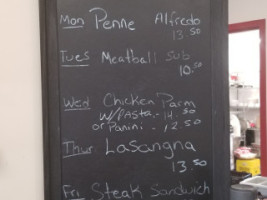 Mon Penne Alfredo
13.50
Tues Meatball Sub
10.50
Wed Chicken Parm
W/Pasta. - 14.50
or Panini. - 12.50
Thur Lasangna
13.50
Fri Steak Sandwich